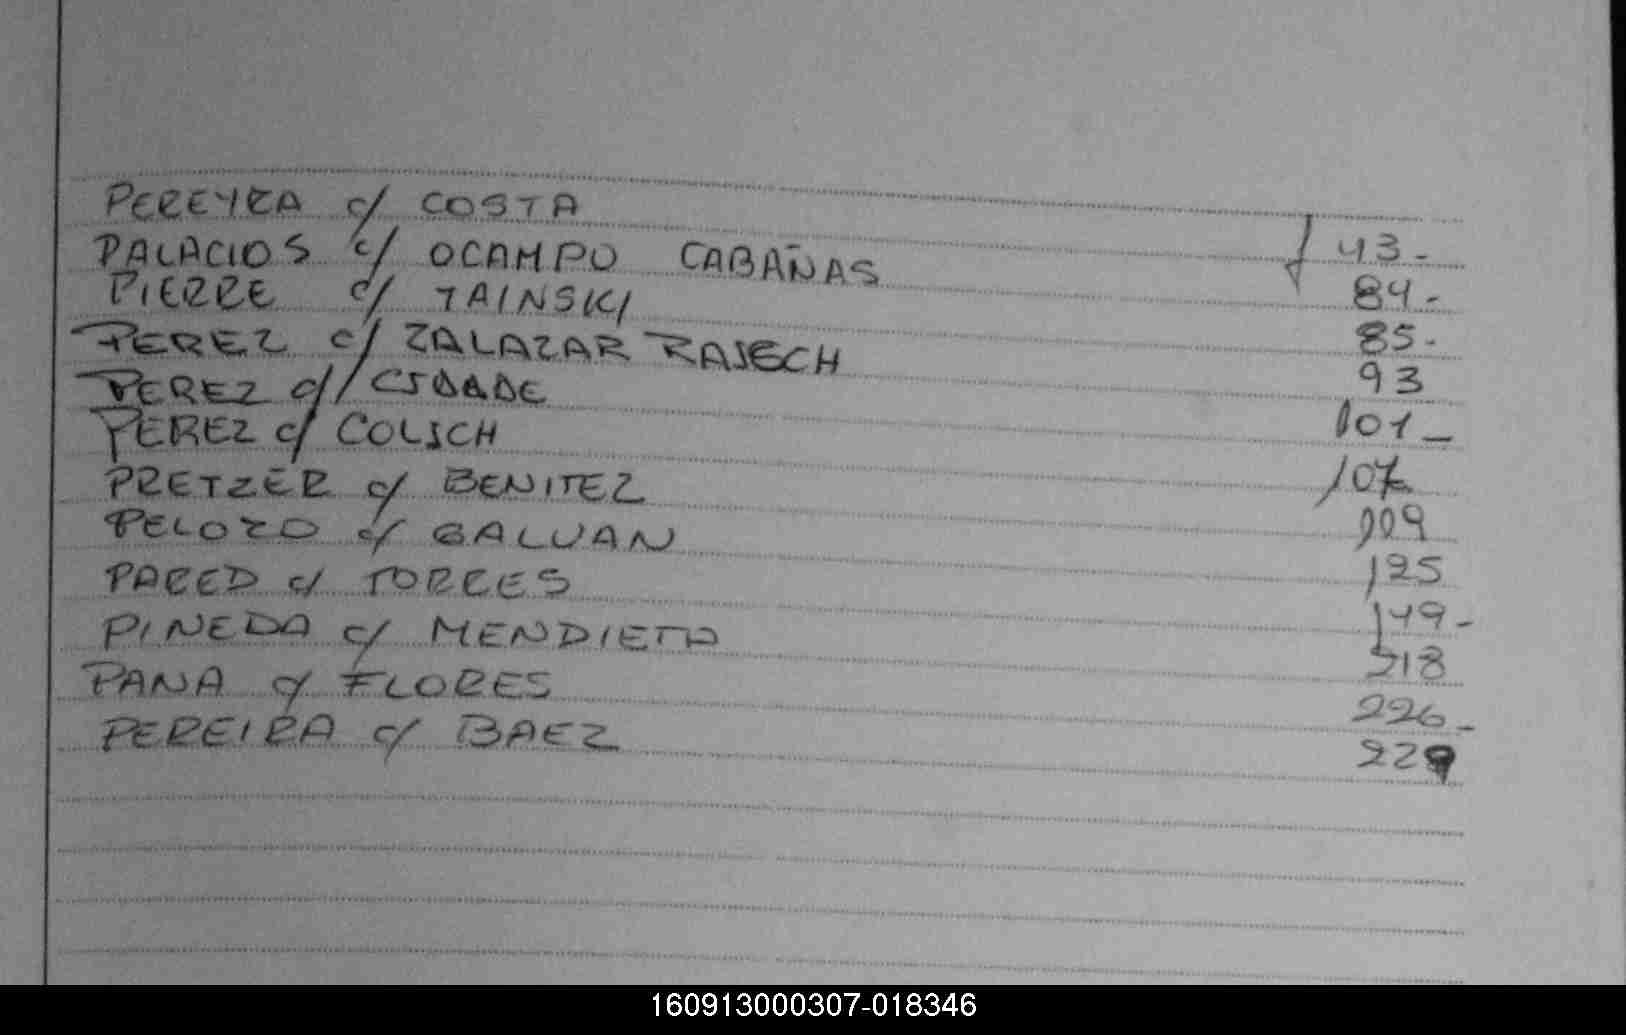 PEREYRA c/ COSTA
PALACIOS c/ OCAMPO CABAÑAS 43-
PIERRE c/ TAINSKI 84-
PEREZ c/ ZALAZAR RAJSCH 85-
PEREZ c/ 93
PEREZ c/ COLSCH 101-
PRETZER c/ BENITEZ 107
PELOZO c/ GALVAN 109
PARED c/ TORRES 125
PINEDA c/ MENDIETA 149-
PANA c/ FLORES 218
PEREIRA c/ BAEZ 226-
229
160913000307-018346